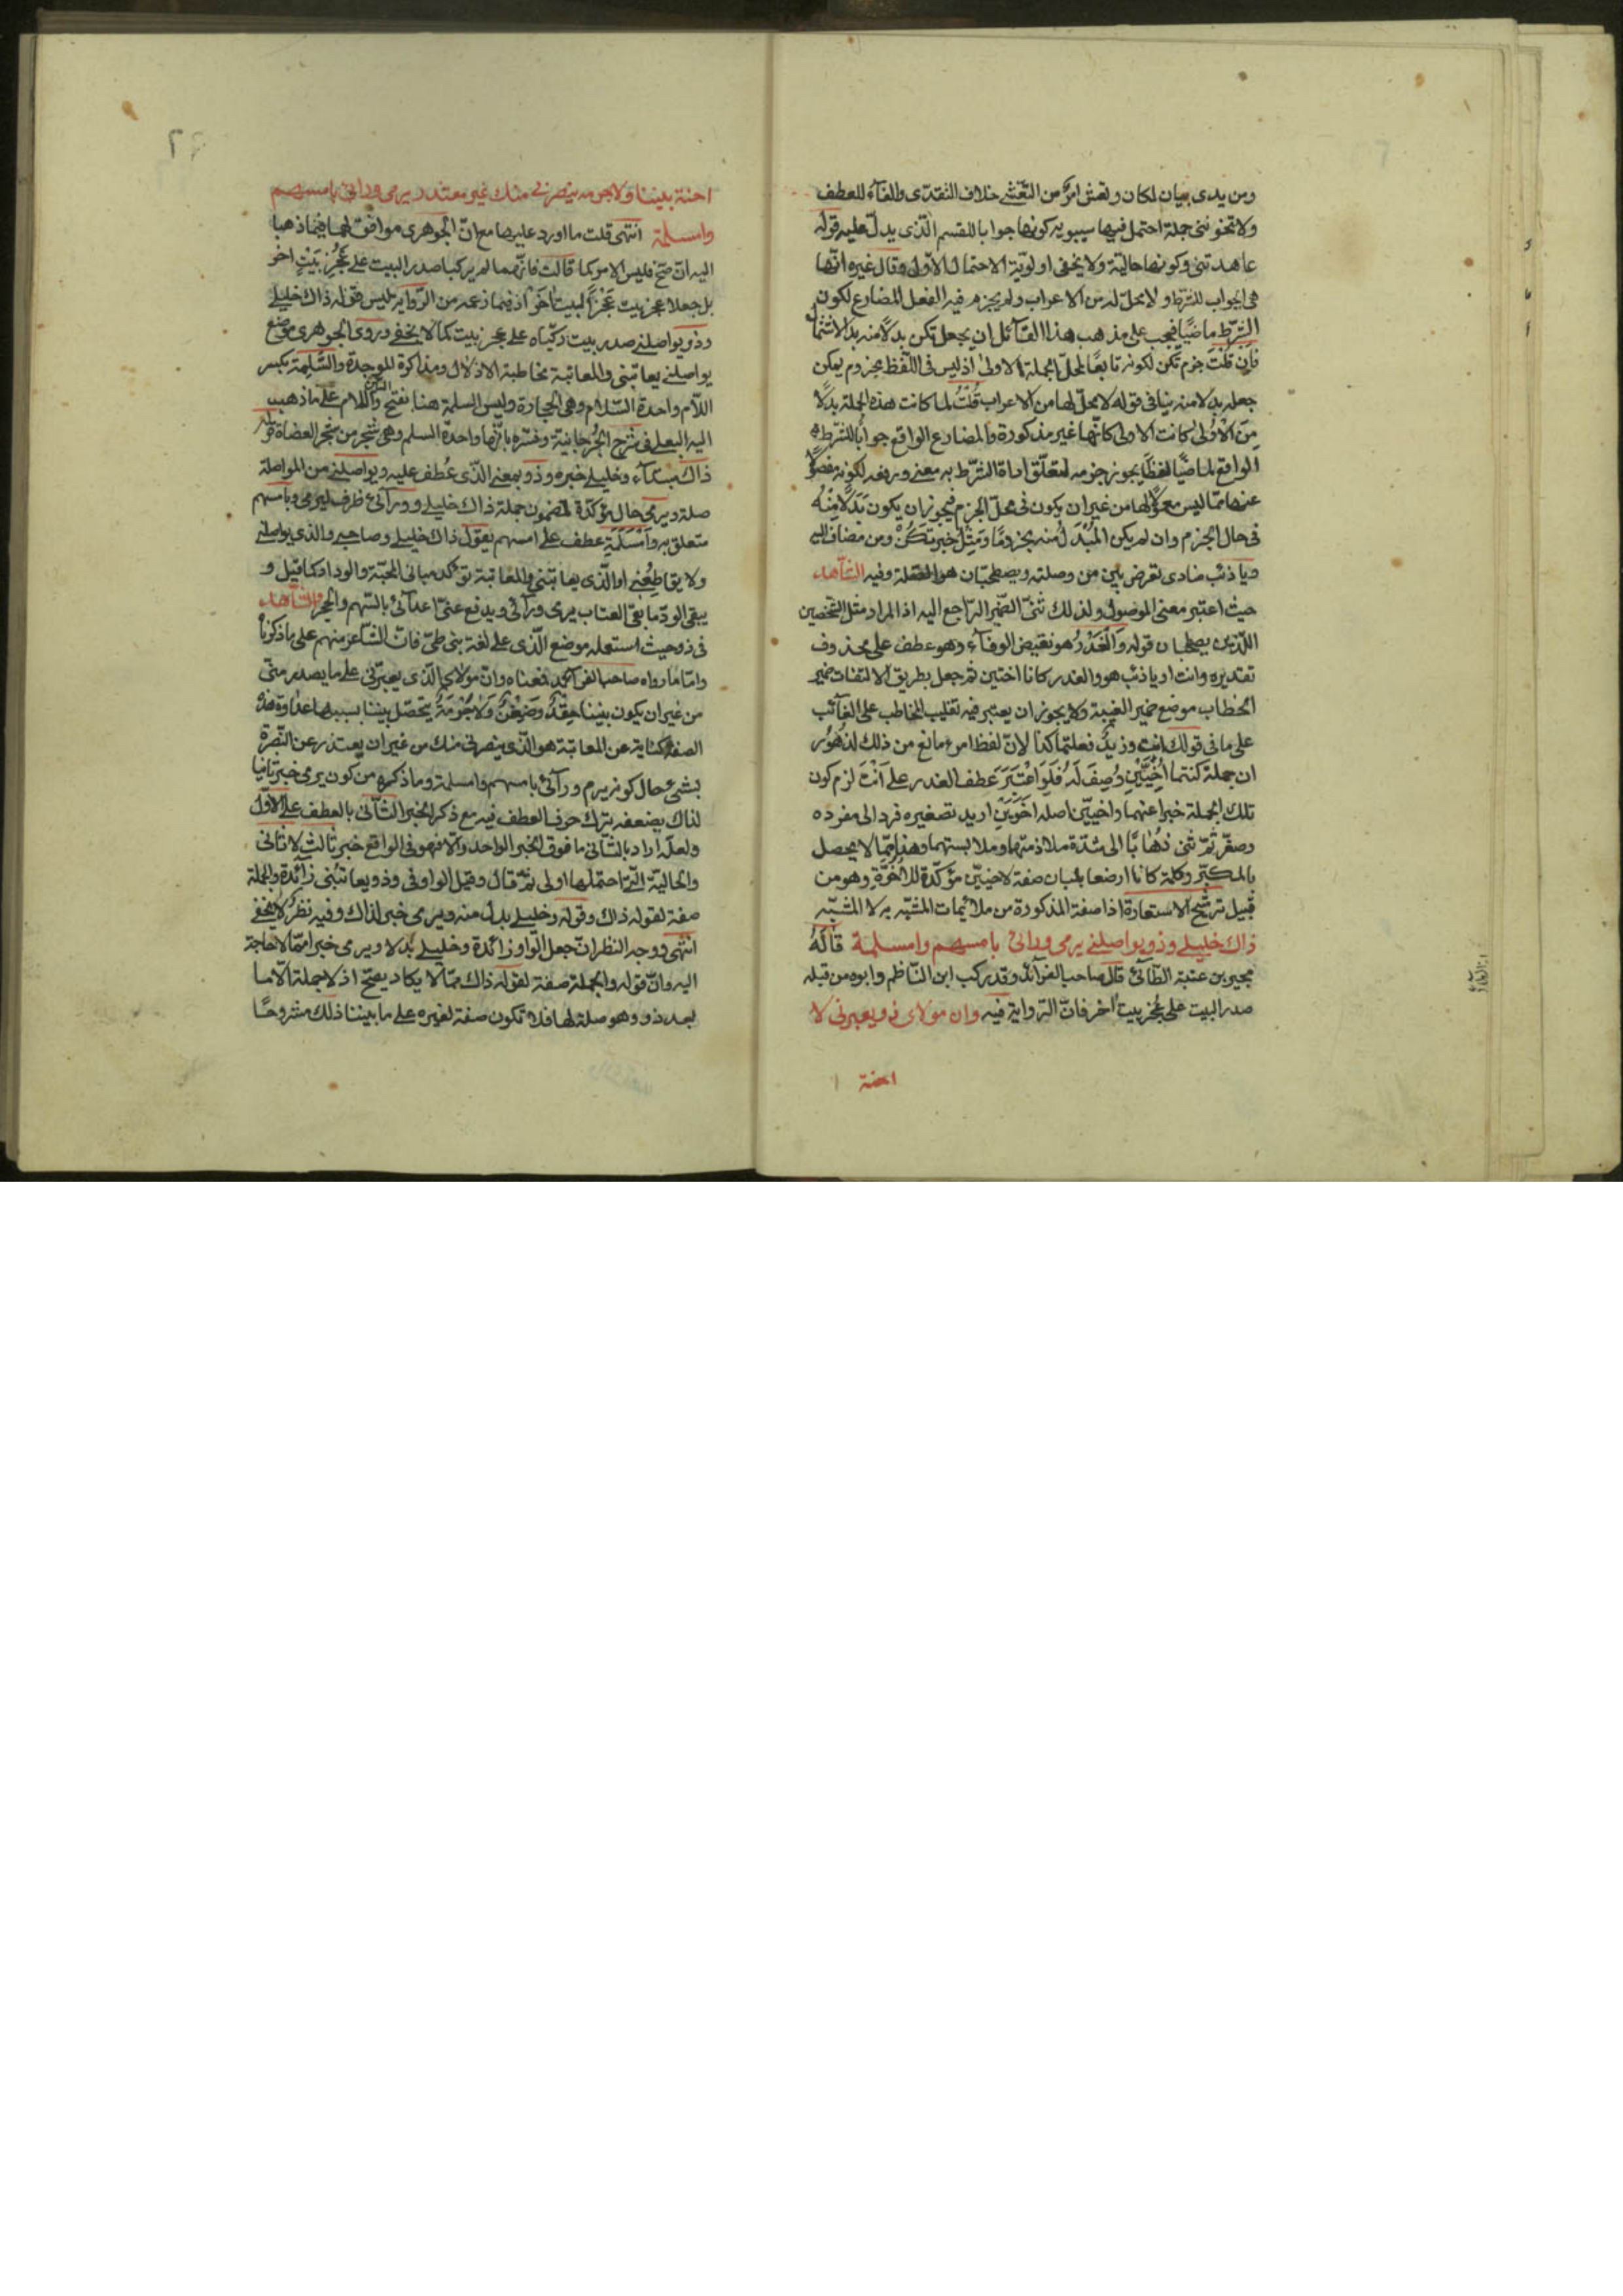 ومن يدى بيان لمكان وتعش امر من التعشى خلاف التغدى والفاء للعطف
ولا تخوننى جملة احتمل فيها سيبويه كونها جوابا للقسم الذى يدل عليه قوله
عاهدتنى وكونها حالية ولا يخفى اولوية الاحتمال الاول وقال غيره انها
هى الجواب للشرط ولا محل له من الاعراب ولم يجزم فيه الفعل المضارع لكون
الشرط ماضيا فيجب على مذهب هذا القائل ان يجعل تكن بدلا منه بدل الاشتمال
فان قلت جزم تكن لكونه تابعا لمحل الجملة الاولى اذ ليس فى اللفظ مجزوم يمكن
جعله بدلا منه ينافى قوله لا محل لها من الاعراب قلت لما كانت هذه الجملة بدلا
من الاولى كانت الاولى كانها غير مذكورة والمضارع الواقع جوابا للشرط
الواقع ماضيا لفظا يجوز جزمه لتعلق اداة الشرط به معنى ورفعه لكونه مفصولا
عنها بما ليس معمولا لها من غير ان يكون فى محل الجزم فيجوز ان يكون بدلا منه
فى حال الجزم وان لم يكن المبدل منه مجزوما ومثل خبر تكن ومن مضاف اليه
ويا ذئب منادى تعرض بين من وصلته ويصطحبان هو الصلة وفيه الشاهد
حيث اعتبر معنى الموصول ولذلك ثنى الضمير الراجع اليه اذ المراد مثل الشخصين
اللذين يصطحبان قوله والغدر هو نقيض الوفاء وهو عطف على محذوف
تقديره وانت او يا ذئب هو والغدر كانا اخيين ثم جعل بطريق الالتفات ضمير
الخطاب موضع ضمير الغيبة ولا يجوز ان يعتبر فيه تغليب المخاطب على الغائب
على ما فى قولك انت وزيد فعلتما كذا لان لفظ امرء مانع من ذلك لظهور
ان جملة كنتما اخيين وصف له فلو اعتبر عطف الغدر على انت لزم كون
تلك الجملة خبرا عنهما واخيين اصله اخوين اريد تصغيره فرد الى مفرده
وصغر ثم ثنى ذهابا الى شدة ملازمتهما وملابستهما وهذا مما لا يحصل
بالمكبر وكلمة كانا ارضعا بلبان صفة لاخيين مؤكدة للاخوة وهو من
قبيل ترشيح الاستعارة اذا صفة المذكورة من ملائمات المشبه به لا المشبه
ذاك خليلى وذو يواصلنى يرمى ورائى بامسهم وامسلمة قاله
بجير بن عنبة الطائى قال صاحب الفرائد وقد ركب ابن الناظم وابوه من قبله
صدر البيت على عجز بيت اخر فان الرواية فيه وان مولاى ذو يعيرنى لا
احنة
احنة بيننا ولا جرمه ينصرنى منك غير معتذر يرمى ورائى بامسهم
وامسلمة انتهى قلت ما اورد عليهما مع ان الجوهرى موافق لهما فيما ذهبا
اليه ان صح فليس الامر كما قالت فانهما لم يركبا صدر البيت على عجز بيت اخر
بل جعلا عجز بيت عجزا لبيت اخر اذ فيما زعمه من الرواية ليس قوله ذاك خليلى
وذو يواصلنى صدر بيت ركباه على عجز بيت كما لا يخفى وروى الجوهرى موضع
يواصلنى يعاتبنى والمعاتبة مخاطبة الاذلال ومذاكرة الموجدة والسلمة بكسر
اللام واحدة السلام وهى الحجارة وليس السلمة هنا بفتح السين واللام على ما ذهب
اليه البعلى فى شرح الجرجانية وفسره بانها واحدة السلم وهى شجر من شجر العضاة قوله
ذاك مبتداء وخليلى خبره وذو بمعنى الذى عطف عليه ويواصلنى من المواصلة
صلة ويرمى حال مؤكدة لمضمون جملة ذاك خليلى وورائى ظرف ليرمى وبامسهم
متعلق به وامسلمة عطف على امسهم يقول ذاك خليلى وصاحبى والذى يواصلنى
ولا يقاطعنى او الذى يعاتبنى والمعاتبة تؤكد مبانى المحبة والوداد كما قيل و
يبقى الود ما بقى العتاب يرمى ورائى ويدفع عنى اعدائى بالسهم والحجر والشاهد
فى ذو حيث استعمله موضع الذى على لغة بنى طى فان الشاعر منهم على ما ذكرناه
واما ما رواه صاحب الفرائد فمعناه وان مولاى الذى يعيرنى على ما يصدر منى
من غير ان يكون بيننا حقد وضغن ولا جرمة يتحصل بيننا بسببها عداوة هذه
الصفة كناية عن المعاتبة هو الذى ينصرنى منك من غير ان يعتذر عن النصرة
بشئ حال كونه يرمى ورائى بامسهم وامسلمة وما ذكره من كون يرمى خبرا ثانيا
لذاك يضعفه ترك حرف العطف فيه مع ذكر الخبر الثانى بالعطف على الاول
ولعله اراد بالثانى ما فوق الخبر الواحد والا فهو فى الواقع خبر ثالث لا ثانى
والحالية التى احتملها اولى ثم قال وقيل الواو فى وذو يعاتبنى زائدة والجملة
صفة لقوله ذاك وقوله وخليلى بدل منه ويرمى خبر لذاك وفيه نظر لا يخفى
انتهى ووجه النظر ان جعل الواو زائدة وخليلى بدلا ويرمى خبرا مما لا حاجة
اليه وان قوله والجملة صفة لقوله ذاك مما لا يكاد يصح اذ لا جملة الا ما
بعد ذو وهو صلة لها فلا تكون صفة لغيره على ما بيننا ذلك مشروحا